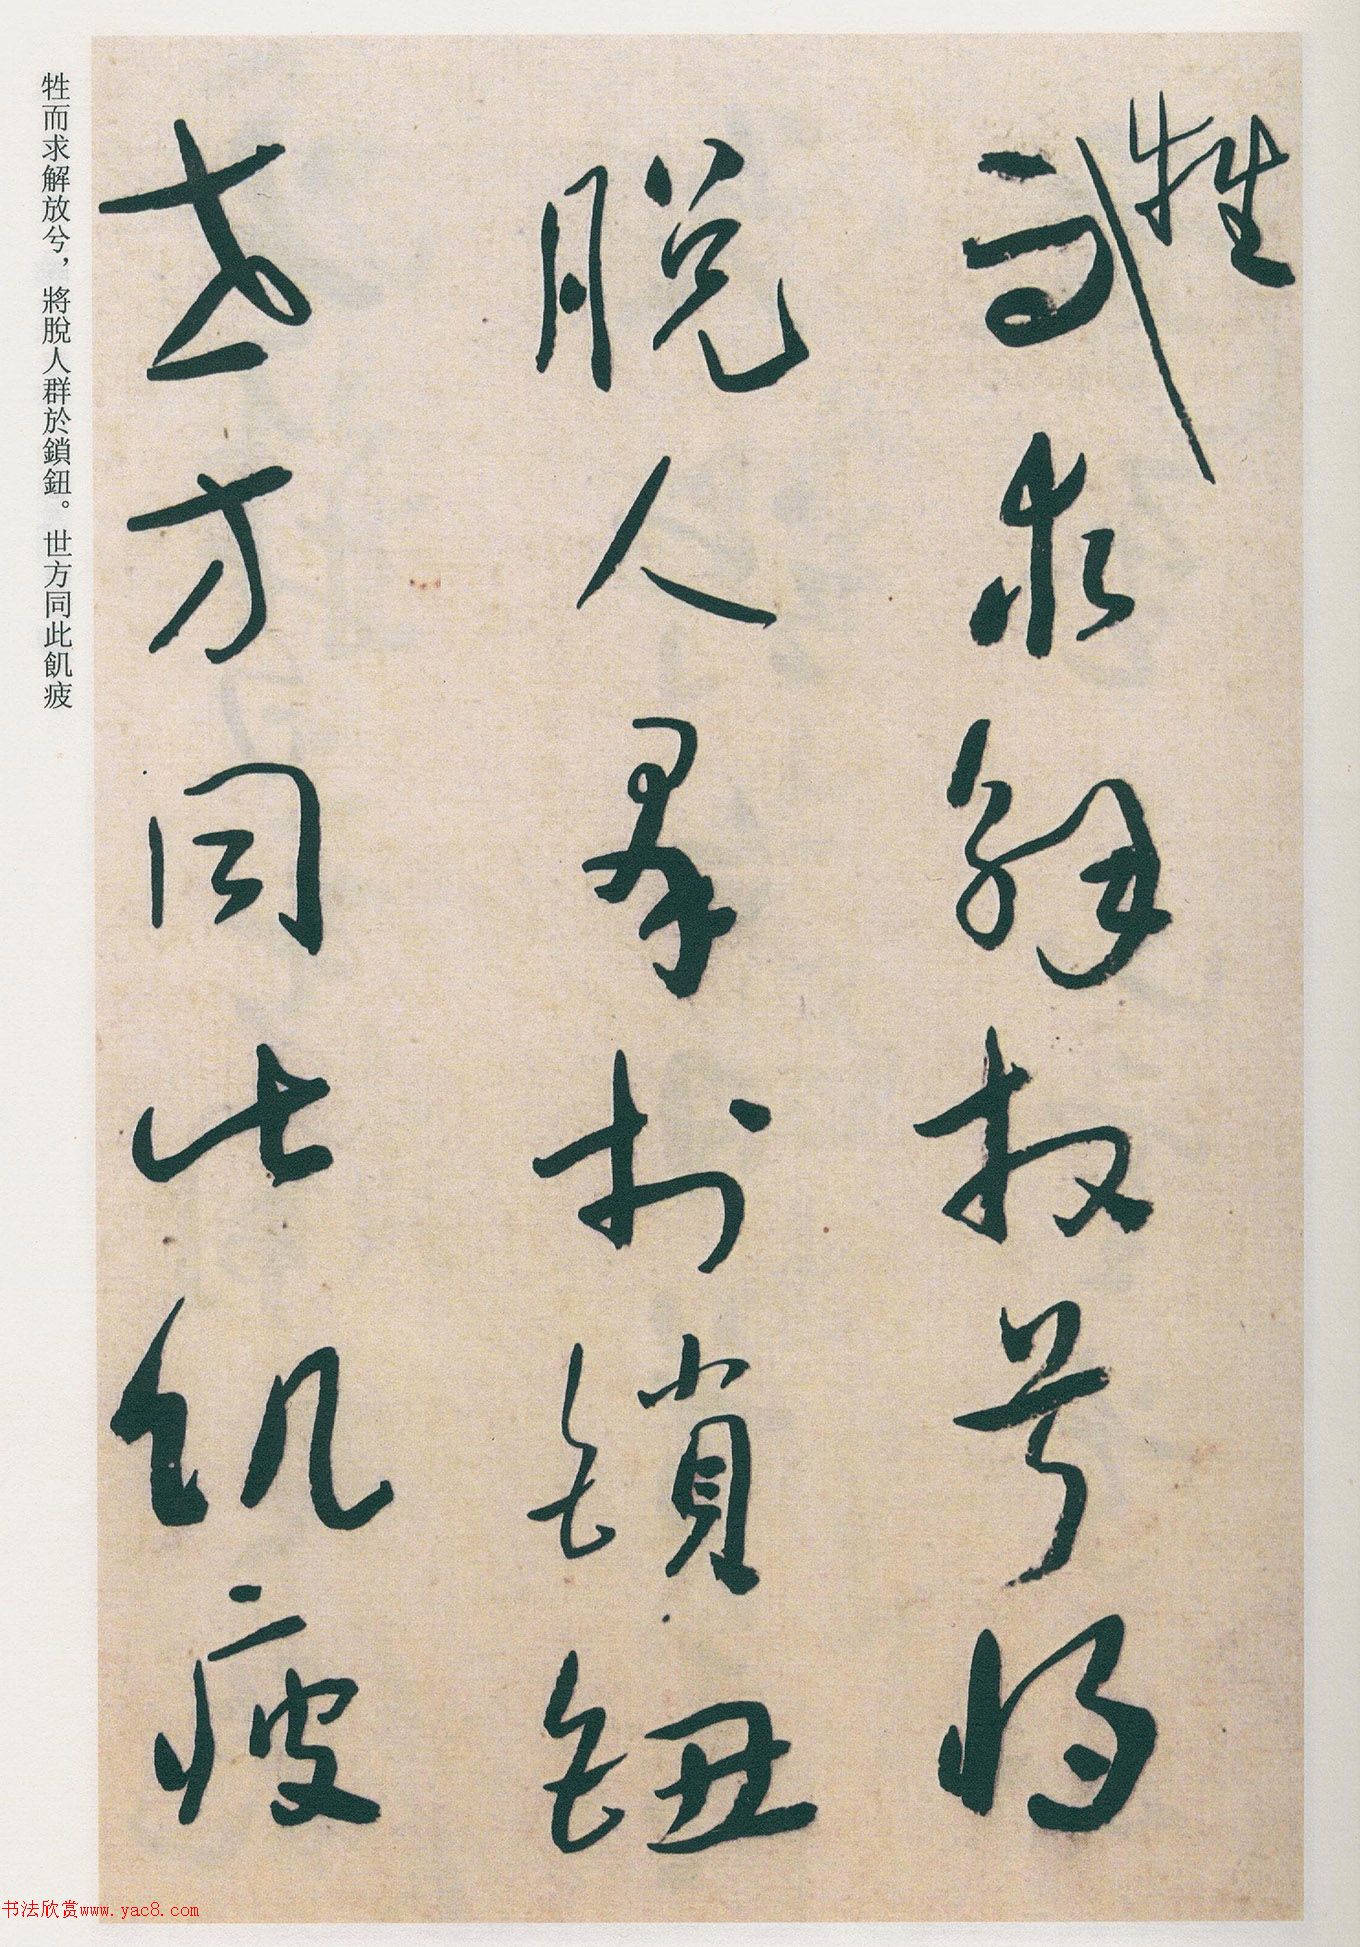 牲而求解放兮將
脫人羣於鎖鈕
世方同此飢疲
牲而求解放兮，將脫人群於鎖鈕。世方同此飢疲
书法欣赏www.yac8.com